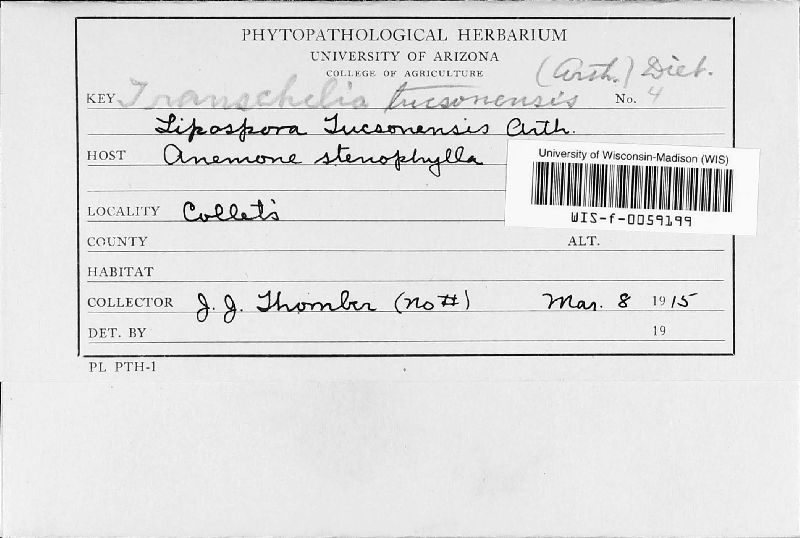 PHYTOPATHOLOGICAL HERBARIUM
UNIVERSITY OF ARIZONA
COLLEGE OF AGRICULTURE
(Arth.) Diet.
KEY Transchelia tucsonensis No. 4
Lipospora Tucsonensis Arth.
HOST Anemone stenophylla
University of Wisconsin-Madison (WIS)
WIS-f-0059199
LOCALITY Collet's
COUNTY ALT.
HABITAT
COLLECTOR J. J. Thornber (no #) Mar. 8 1915
DET. BY 19
PL PTH-1